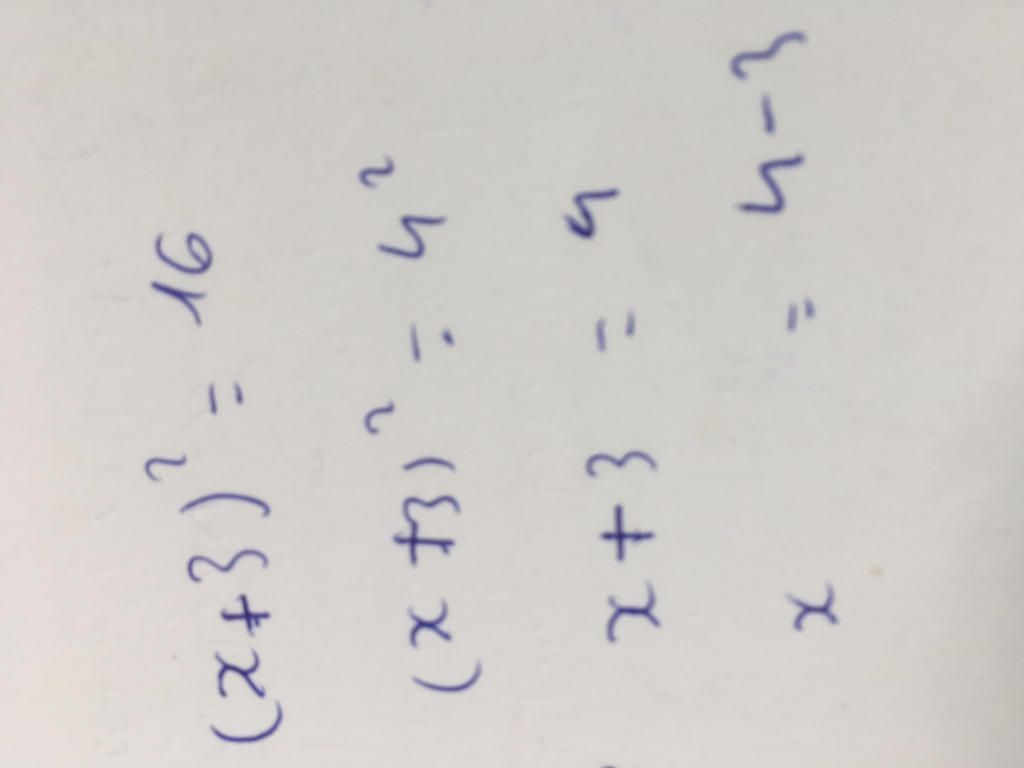 (x+3)² = 16
(x+3)² = 4²
x+3 = 4
x = 4-3